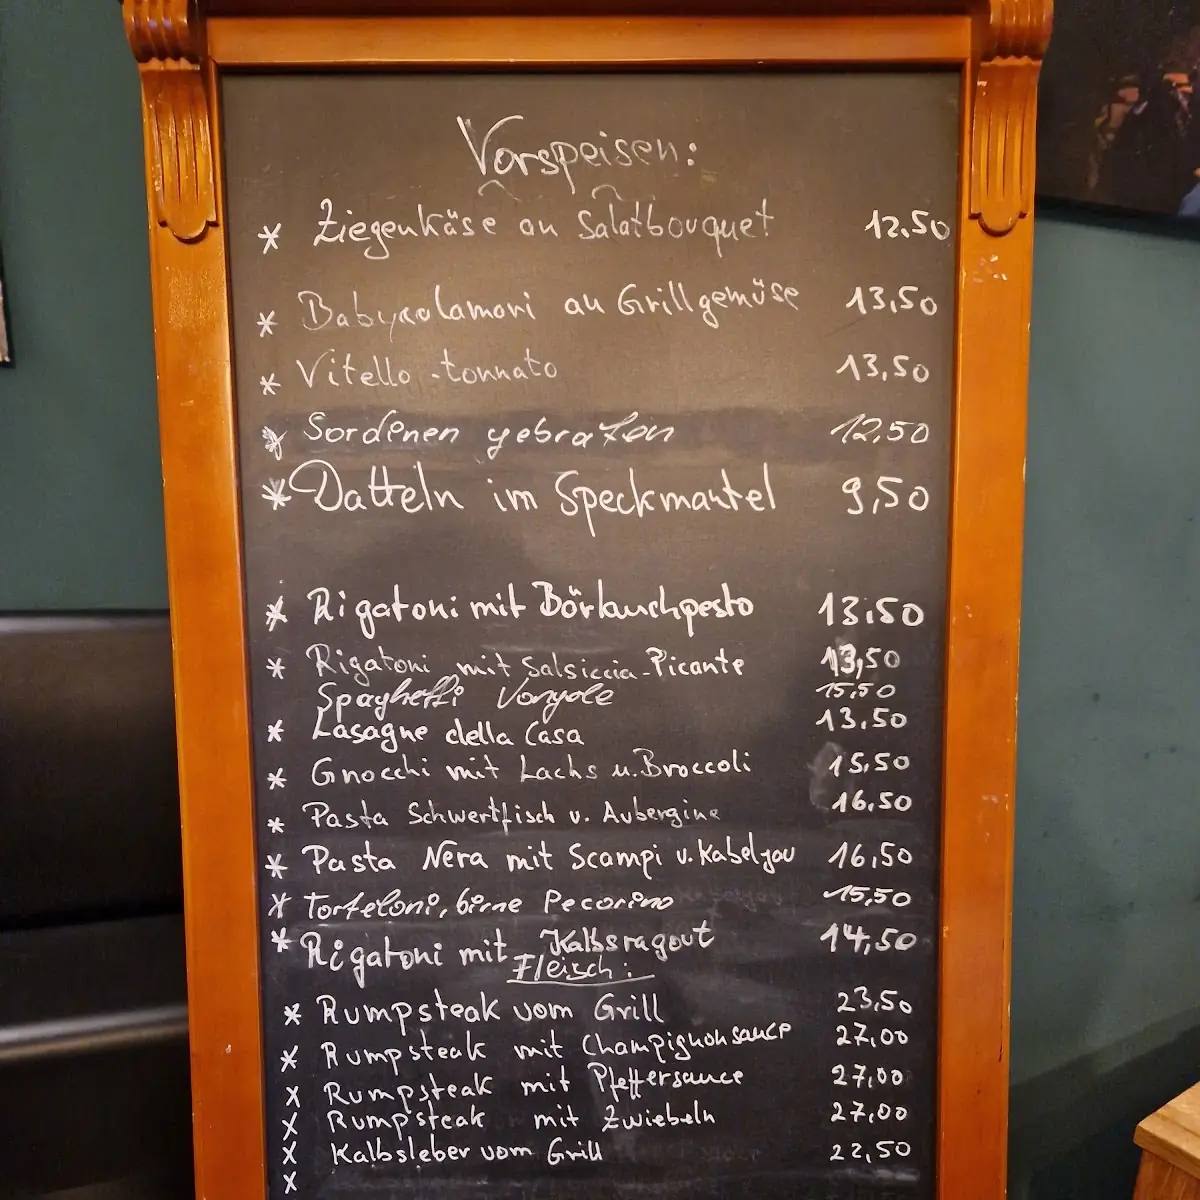 Vorspeisen:
* Ziegenkäse an Salatbouquet 12.50
* Babycalamari an Grillgemüse 13,50
* Vitello-tonnato 13,50
* Sardenen gebraten 12,50
* Datteln im Speckmantel 9,50
* Rigatoni mit Börlauchpesto 13.50
* Rigatoni mit Salsiccia-Picante 13,50
Spaghetti Vongole 15,50
* Lasagne della Casa 13.50
* Gnocchi mit Lachs u. Broccoli 15.50
* Pasta Schwertfisch u. Aubergine 16.50
* Pasta Nera mit Scampi u. Kabeljau 16,50
* Torteloni, birne Pecorino 15,50
* Rigatoni mit Kalbsragout 14,50
Fleisch:
* Rumpsteak vom Grill 23,50
* Rumpsteak mit Champignonsauce 27,00
x Rumpsteak mit Pfeffersauce 27,00
x Rumpsteak mit Zwiebeln 27,00
x Kalbsleber vom Grill 22,50
x